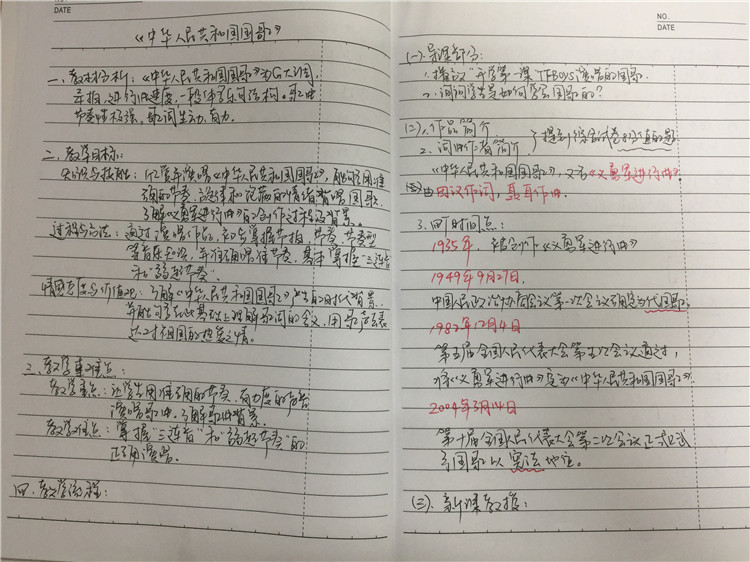 NO.
DATE
《中华人民共和国国歌》
一、教材分析：《中华人民共和国国歌》为G大调，
二拍，进行曲速度，一段体音乐曲式结构。歌曲
节奏性极强，歌词生动、有力。
二、教学目标：
知识与技能：
国的节奏、旋律和
了解《义勇军进行曲》的创作过程及背景。
过程与方法：通过演唱作品，初步掌握节拍、节奏、节奏型
等音乐知识，并准确唱准节奏，基本掌握“三连音”
和“弱起节奏”。
情感态度与价值观：了解《中华人民共和国国歌》产生的时代背景，
并能够在此基础上理解歌词的含义，用歌声去表
达对祖国的热爱之情。
三、教学重难点：
教学重点：让学生用准确的节奏、有力度的声音
演唱歌曲，了解歌曲背景。
教学难点：掌握“三连音”和“弱起节奏”的
正确演唱。
四、教学流程：
NO.
DATE
(一)、导课部分：
1.播放“开学第一课”TFBOYS演唱的国歌.
2.询问学生是如何学会国歌的？
(二)、1.作品简介
2.词曲作者简介 提到综合试卷8分值的题.
《中华人民共和国国歌》，又名《义勇军进行曲》.
由田汉作词，聂耳作曲.
3.四个时间点：
1935年，《义勇军进行曲》
1949年9月27日.
中国人民政治协商会议第一次会议确定为代国歌。
1982年12月4日
第五届全国人民代表大会第五次会议通过，
将《义勇军进行曲》定为《中华人民共和国国歌》.
2004年3月14日
第十届全国人民代表大会第二次会议正式
国歌以宪法地位。
(三)、新课教授：